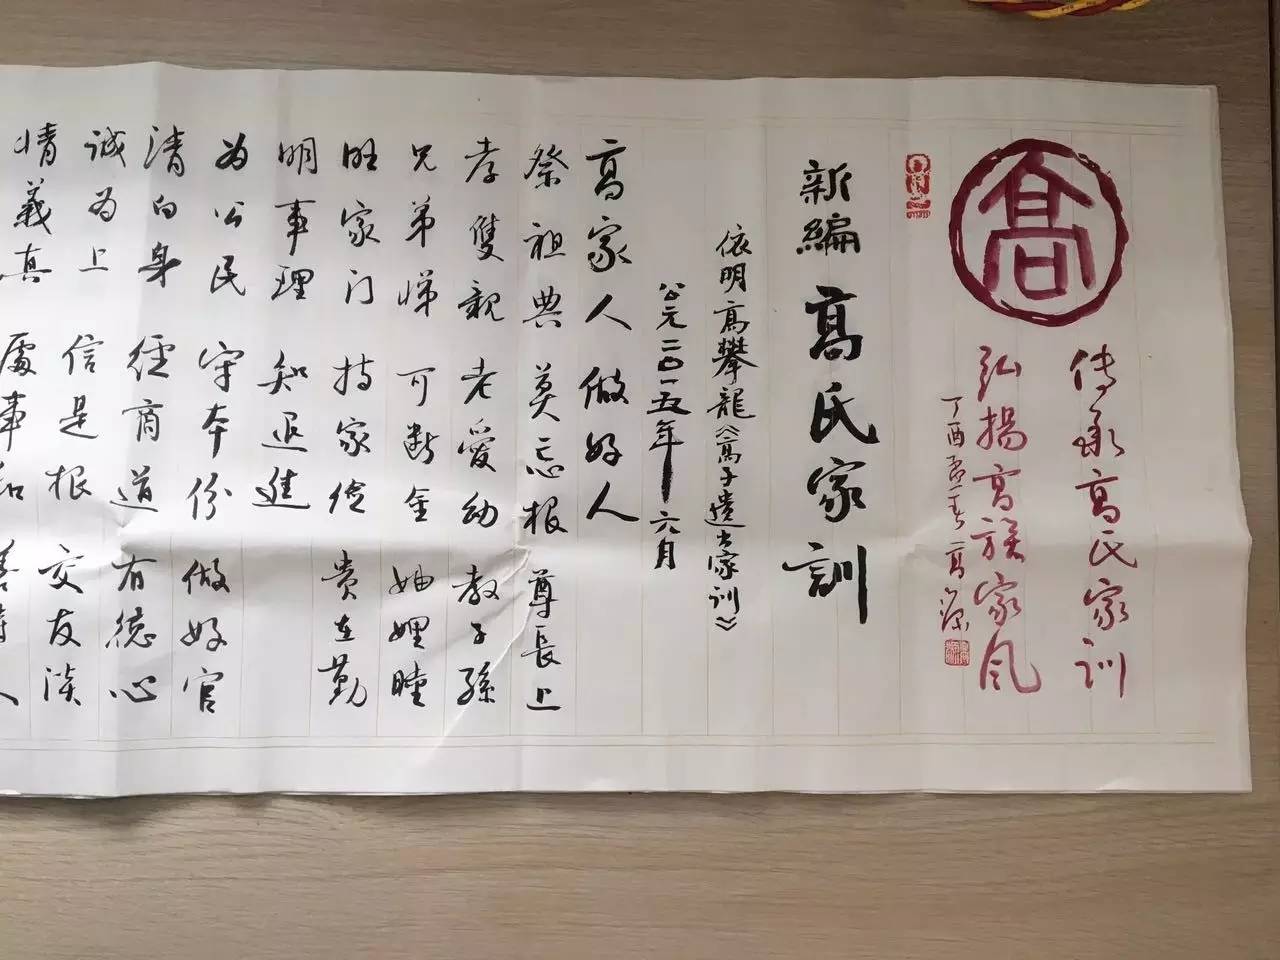 高
传承高氏家训
弘揚高族家风
丁酉孟春高源
新編高氏家訓
依明高攀龍《高子遺書家训》
公元二〇一五年六月
高家人做好人
祭祖典莫忘根尊長上
孝雙親老愛幼教子孫
兄弟悌可断金妯娌睦
旺家门持家俭贵在勤
明事理知退進
为公民守本份做好官
清白身經商道有德心
诚为上信是根交友淡
情義真處事和善待人